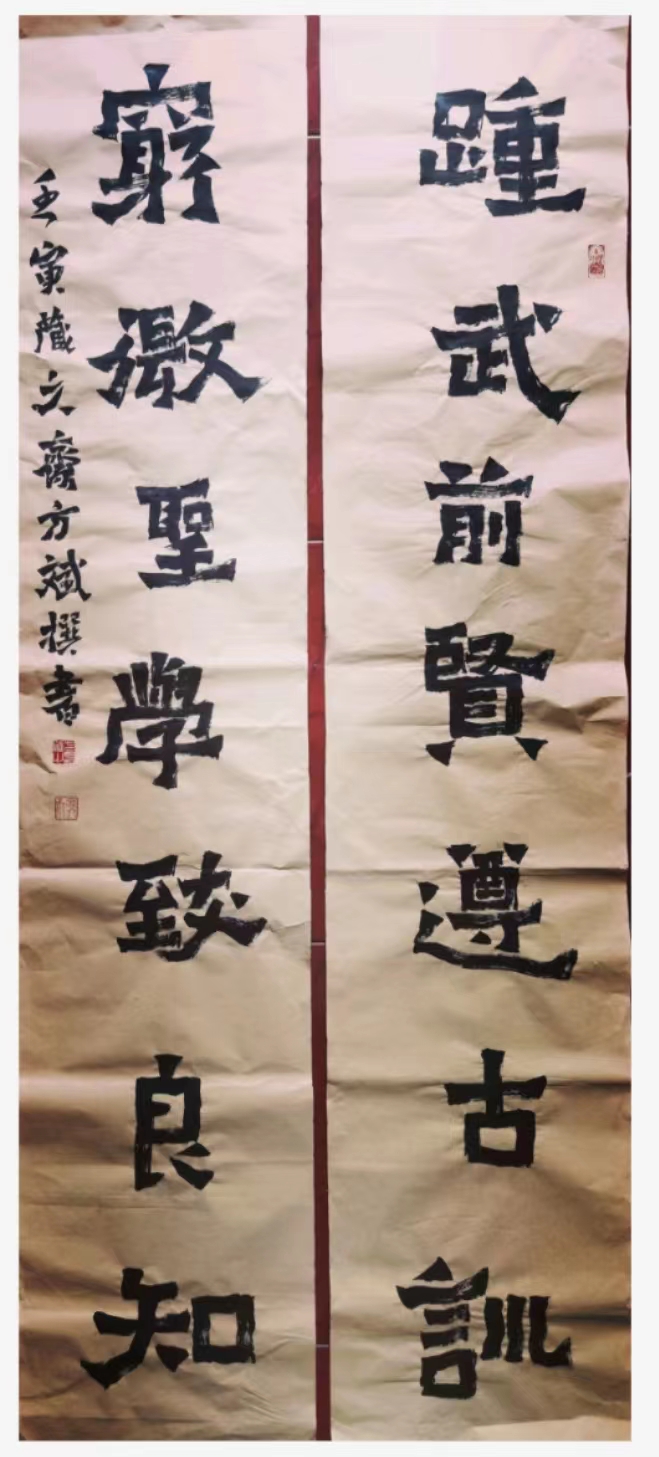 踵武前賢遵古訓
窮微聖學致良知
壬寅藏文齋方斌撰書